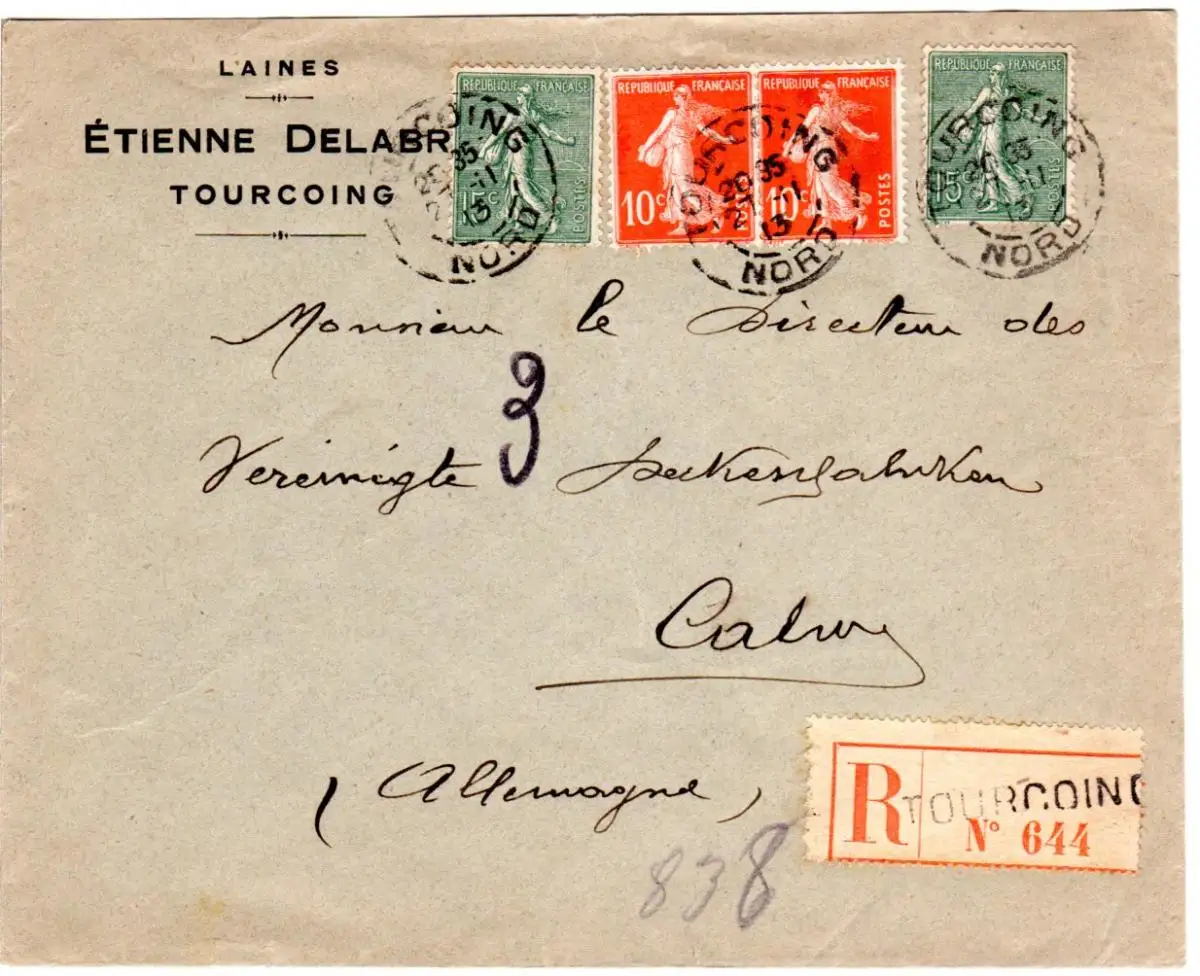 LAINES
ÉTIENNE DELABR
TOURCOING
REPUBLIQUE FRANÇAISE
15c
POSTES
REPUBLIQUE FRANÇAISE
10c
REPUBLIQUE FRANÇAISE
10c
POSTES
REPUBLIQUE FRANÇAISE
15
TOURCOING
20 35
13
NORD
TOURCOING
20 35
27-11
13
NORD
TOURCOING
20 35
13
NORD
Monsieur le Directeur des
3
Vereinigte Deckenfabriken
Calw
(Allemagne)
R
TOURCOING
N° 644
838